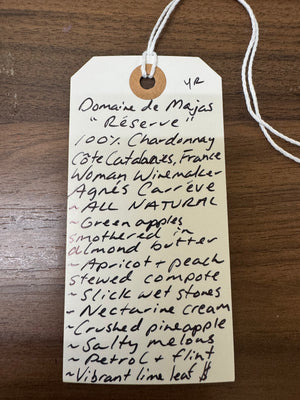 YR
Domaine de Majas
"Réserve"
100% Chardonnay
Côte Catalanes, France
Woman Winemaker
Agnès Carrève
~ALL NATURAL
~Green apples
smothered in
almond butter
~Apricot + peach
stewed compote
~Slick wet stones
~Nectarine cream
~Crushed pineapple
~Salty melons
~Petrol + flint
~Vibrant lime leaf $